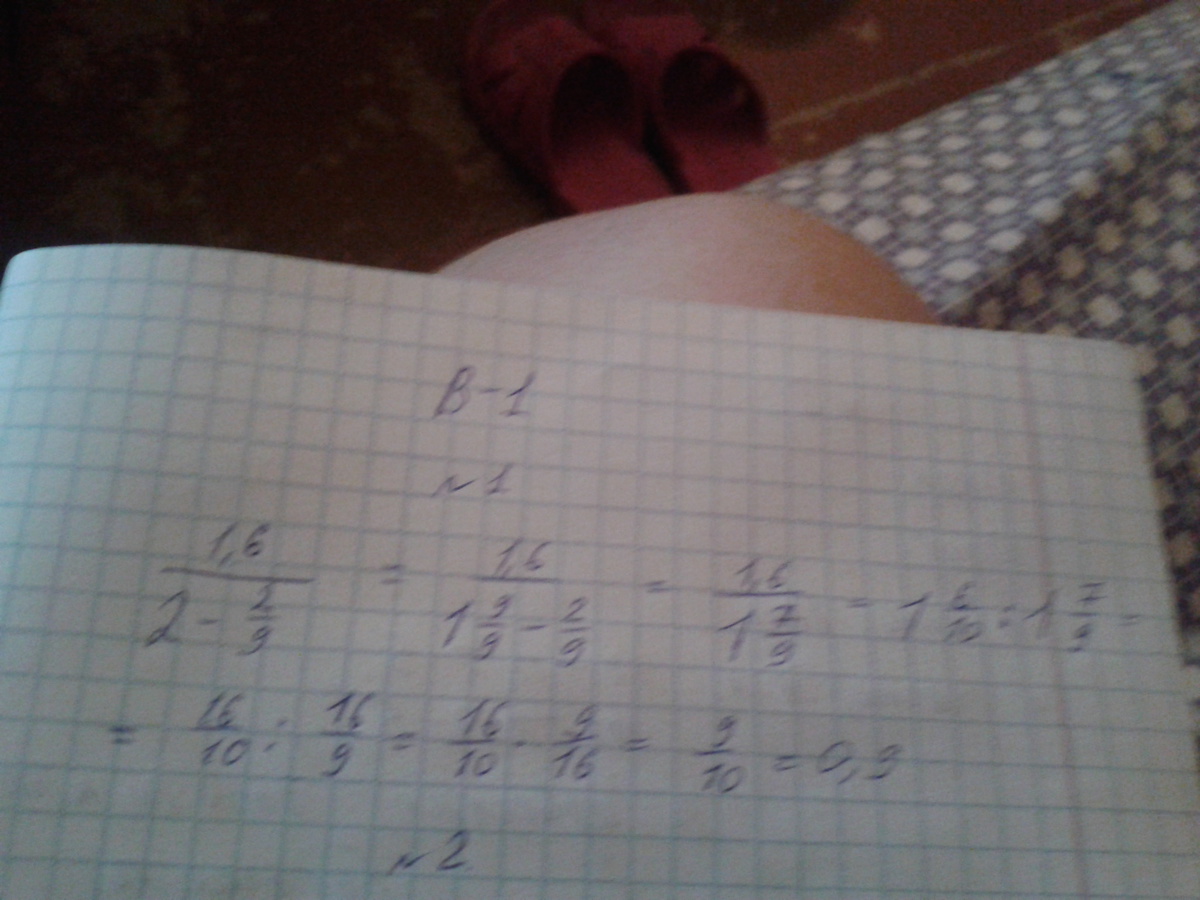 В-1
№1
1,6/(2 - 2/9) = 1,6/(1 9/9 - 2/9) = 1,6/(1 7/9) = 1 6/10 : 1 7/9 =
= 16/10 : 16/9 = 16/10 · 9/16 = 9/10 = 0,9
№2